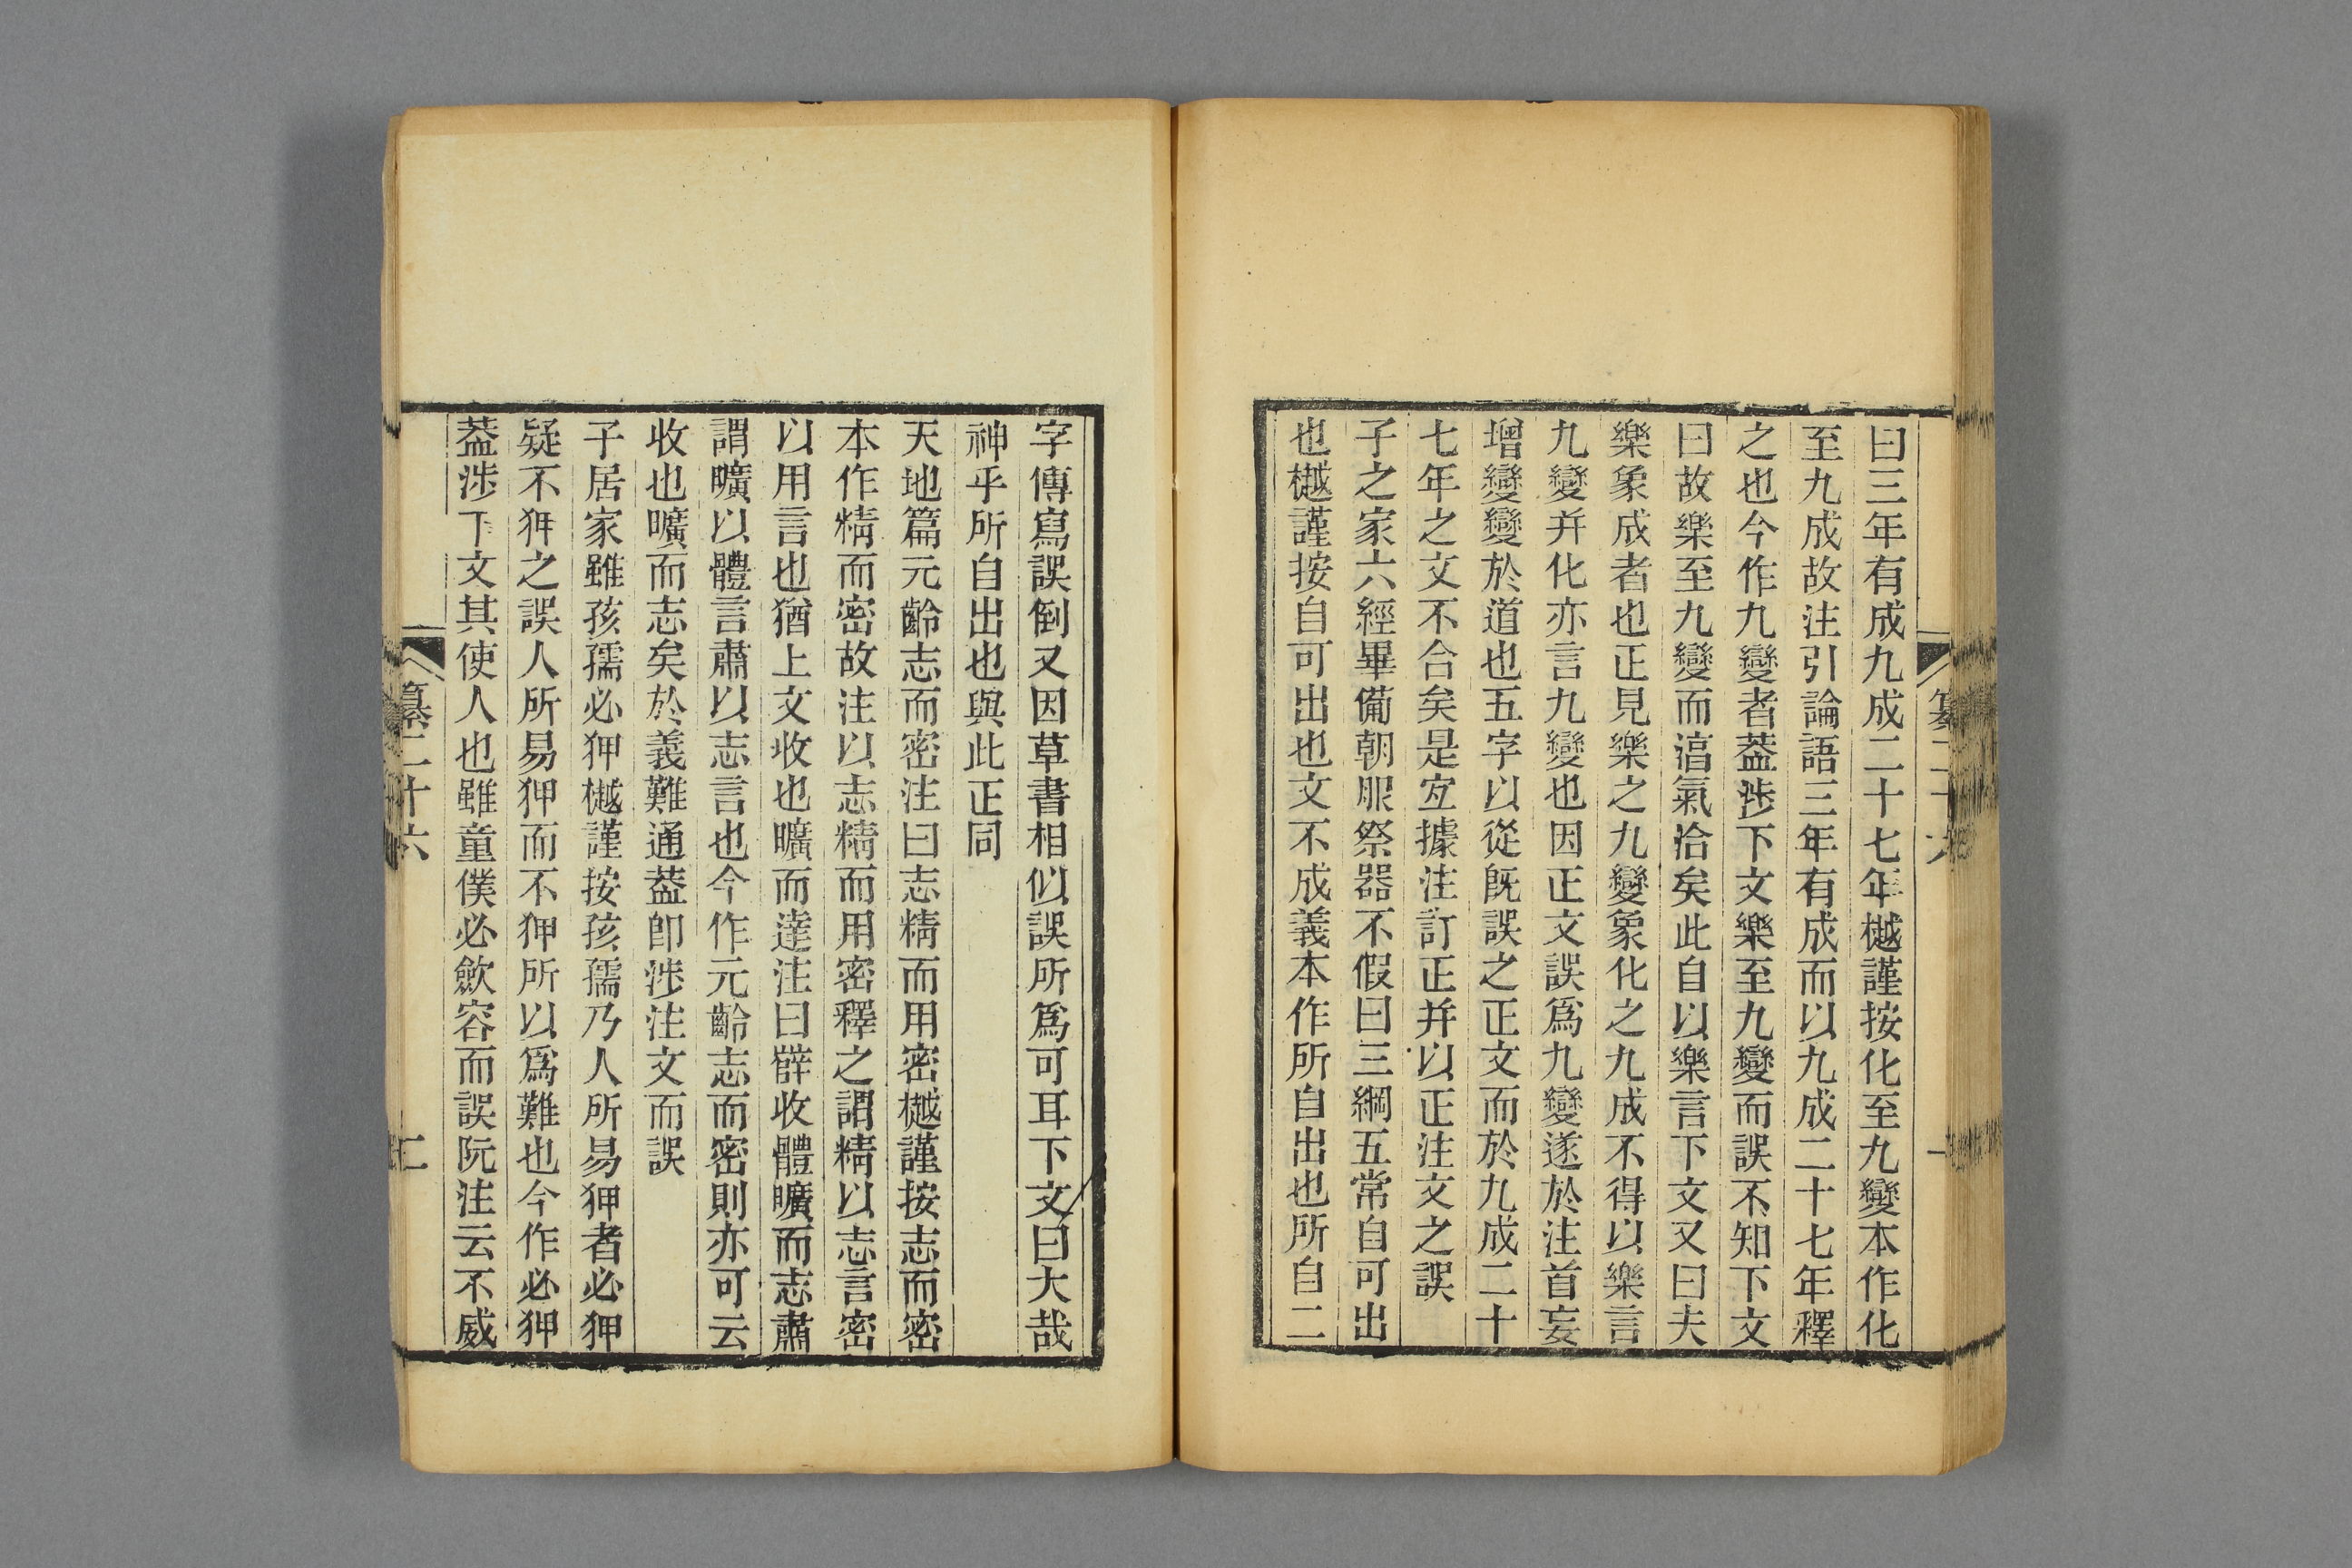 曰三年有成九成二十七年樾謹按化至九變本作化
至九成故注引論語三年有成而以九成二十七年釋
之也今作九變者葢涉下文樂至九變而誤不知下文
曰故樂至九變而湻氣洽矣此自以樂言下文又曰夫
樂象成者也正見樂之九變象化之九成不得以樂言
九變并化亦言九變也因正文誤爲九變遂於注首妄
增變變於道也五字以從旣誤之正文而於九成二十
七年之文不合矣是宐據注訂正并以正注文之誤
子之家六經畢備朝服祭器不假曰三綱五常自可出
也樾謹按自可出也文不成義本作所自出也所自二
字傳寫誤倒又因草書相似誤所爲可耳下文曰大哉
神乎所自出也與此正同
天地篇元齡志而密注曰志精而用密樾謹按志而密
本作精而密故注以志精而用密釋之謂精以志言密
以用言也猶上文收也曠而達注曰辥收體曠而志肅
謂曠以體言肅以志言也今作元齡志而密則亦可云
收也曠而志矣於義難通葢卽涉注文而誤
子居家雖孩孺必狎樾謹按孩孺乃人所易狎者必狎
疑不狎之誤人所易狎而不狎所以爲難也今作必狎
葢涉下文其使人也雖童僕必歛容而誤阮注云不威
纂二十六